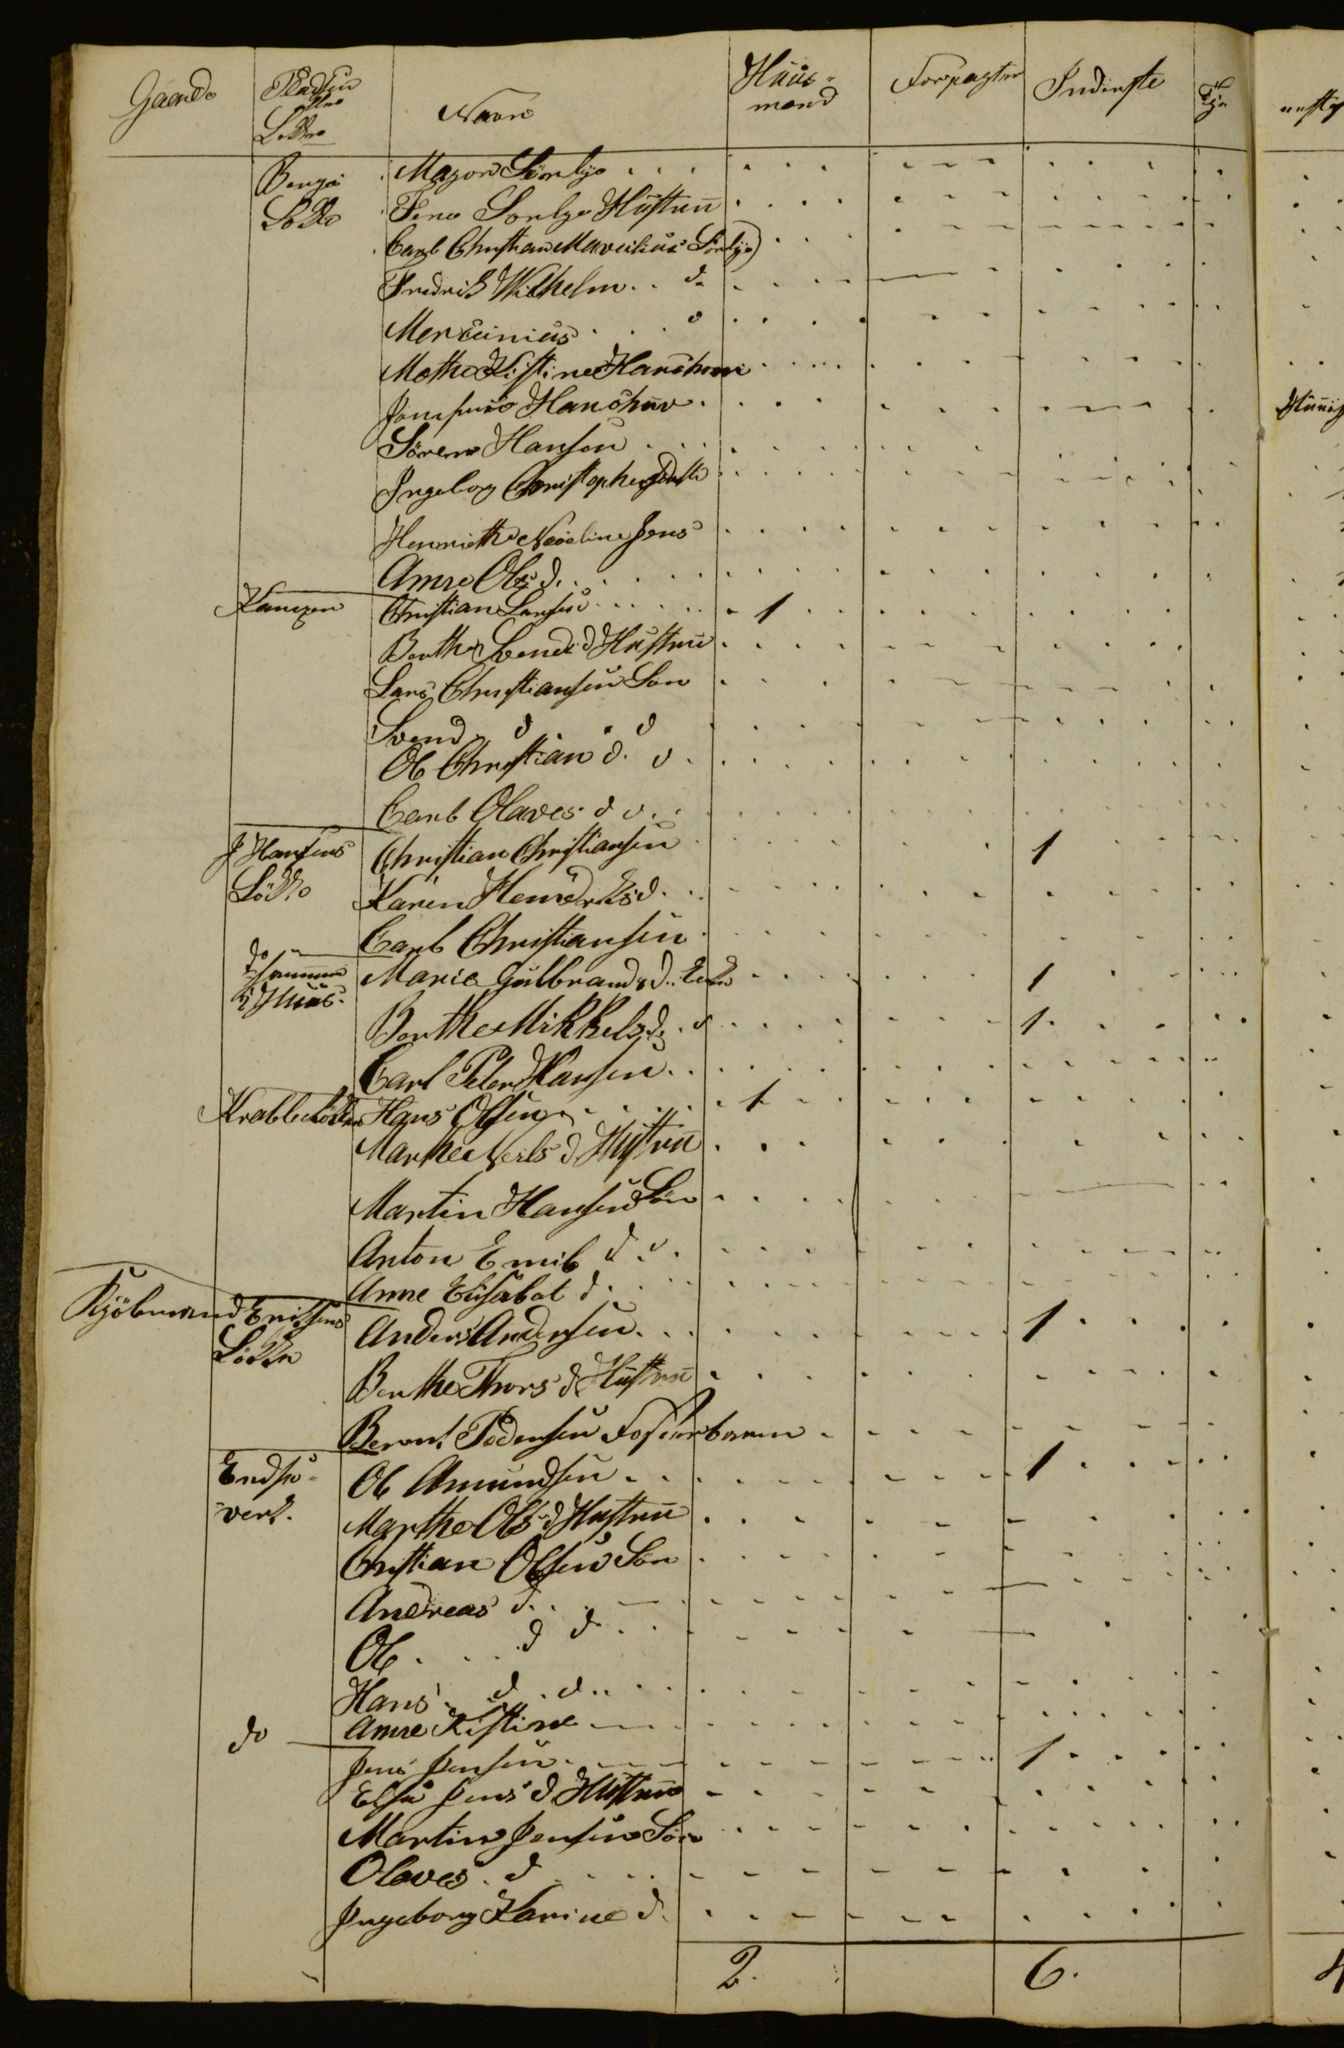 Gaard Pladsen eller Løkke Navn Huus-mænd Forpagter Inderste
Løkke Major Sørlye
Hustru
Carl Christian Sørlye
Fredrik Wilhelm d
Mercinius
Mathe Kistine
Søren Hansen
Ingeborg Christophersdatter
Henriethe Jens
Anne Ols d.
Kampen Christian Larsen 1
Berthe Svends d Hustru
Lars Christiansen Søn
Svend d d
Ole Christian d. d
Carl Olaves d d
J Hansens Løkke Christian Christiansen 1
Karen Henderks d.
Carl Christiansen
do sammes Huus Marie Gulbrands d. Enke 1
Berthe Mikkels d. d 1
Carl Peter Hansen
Krabbeløkken Hans Olsen 1
Marthe Neils d Hustru
Martin Hansen Søn
Anton Emil d d
Anne Elisabet d
Kjøbmand Erichsens Løkke Anders Andersen 1
Berthe Thors d Hustru
Bernt Pedersen Fosterbarn
Ole Amundsen 1
Marthe Ols d Hustru
Christian Olsen Søn
Andreas d
Ole d d
Hans d d
Anne Kistine
do Jens Jensen 1
Jens d Hustru
Martin Jensen Søn
Olaves d
Ingeborg Karine d.
2. 6.